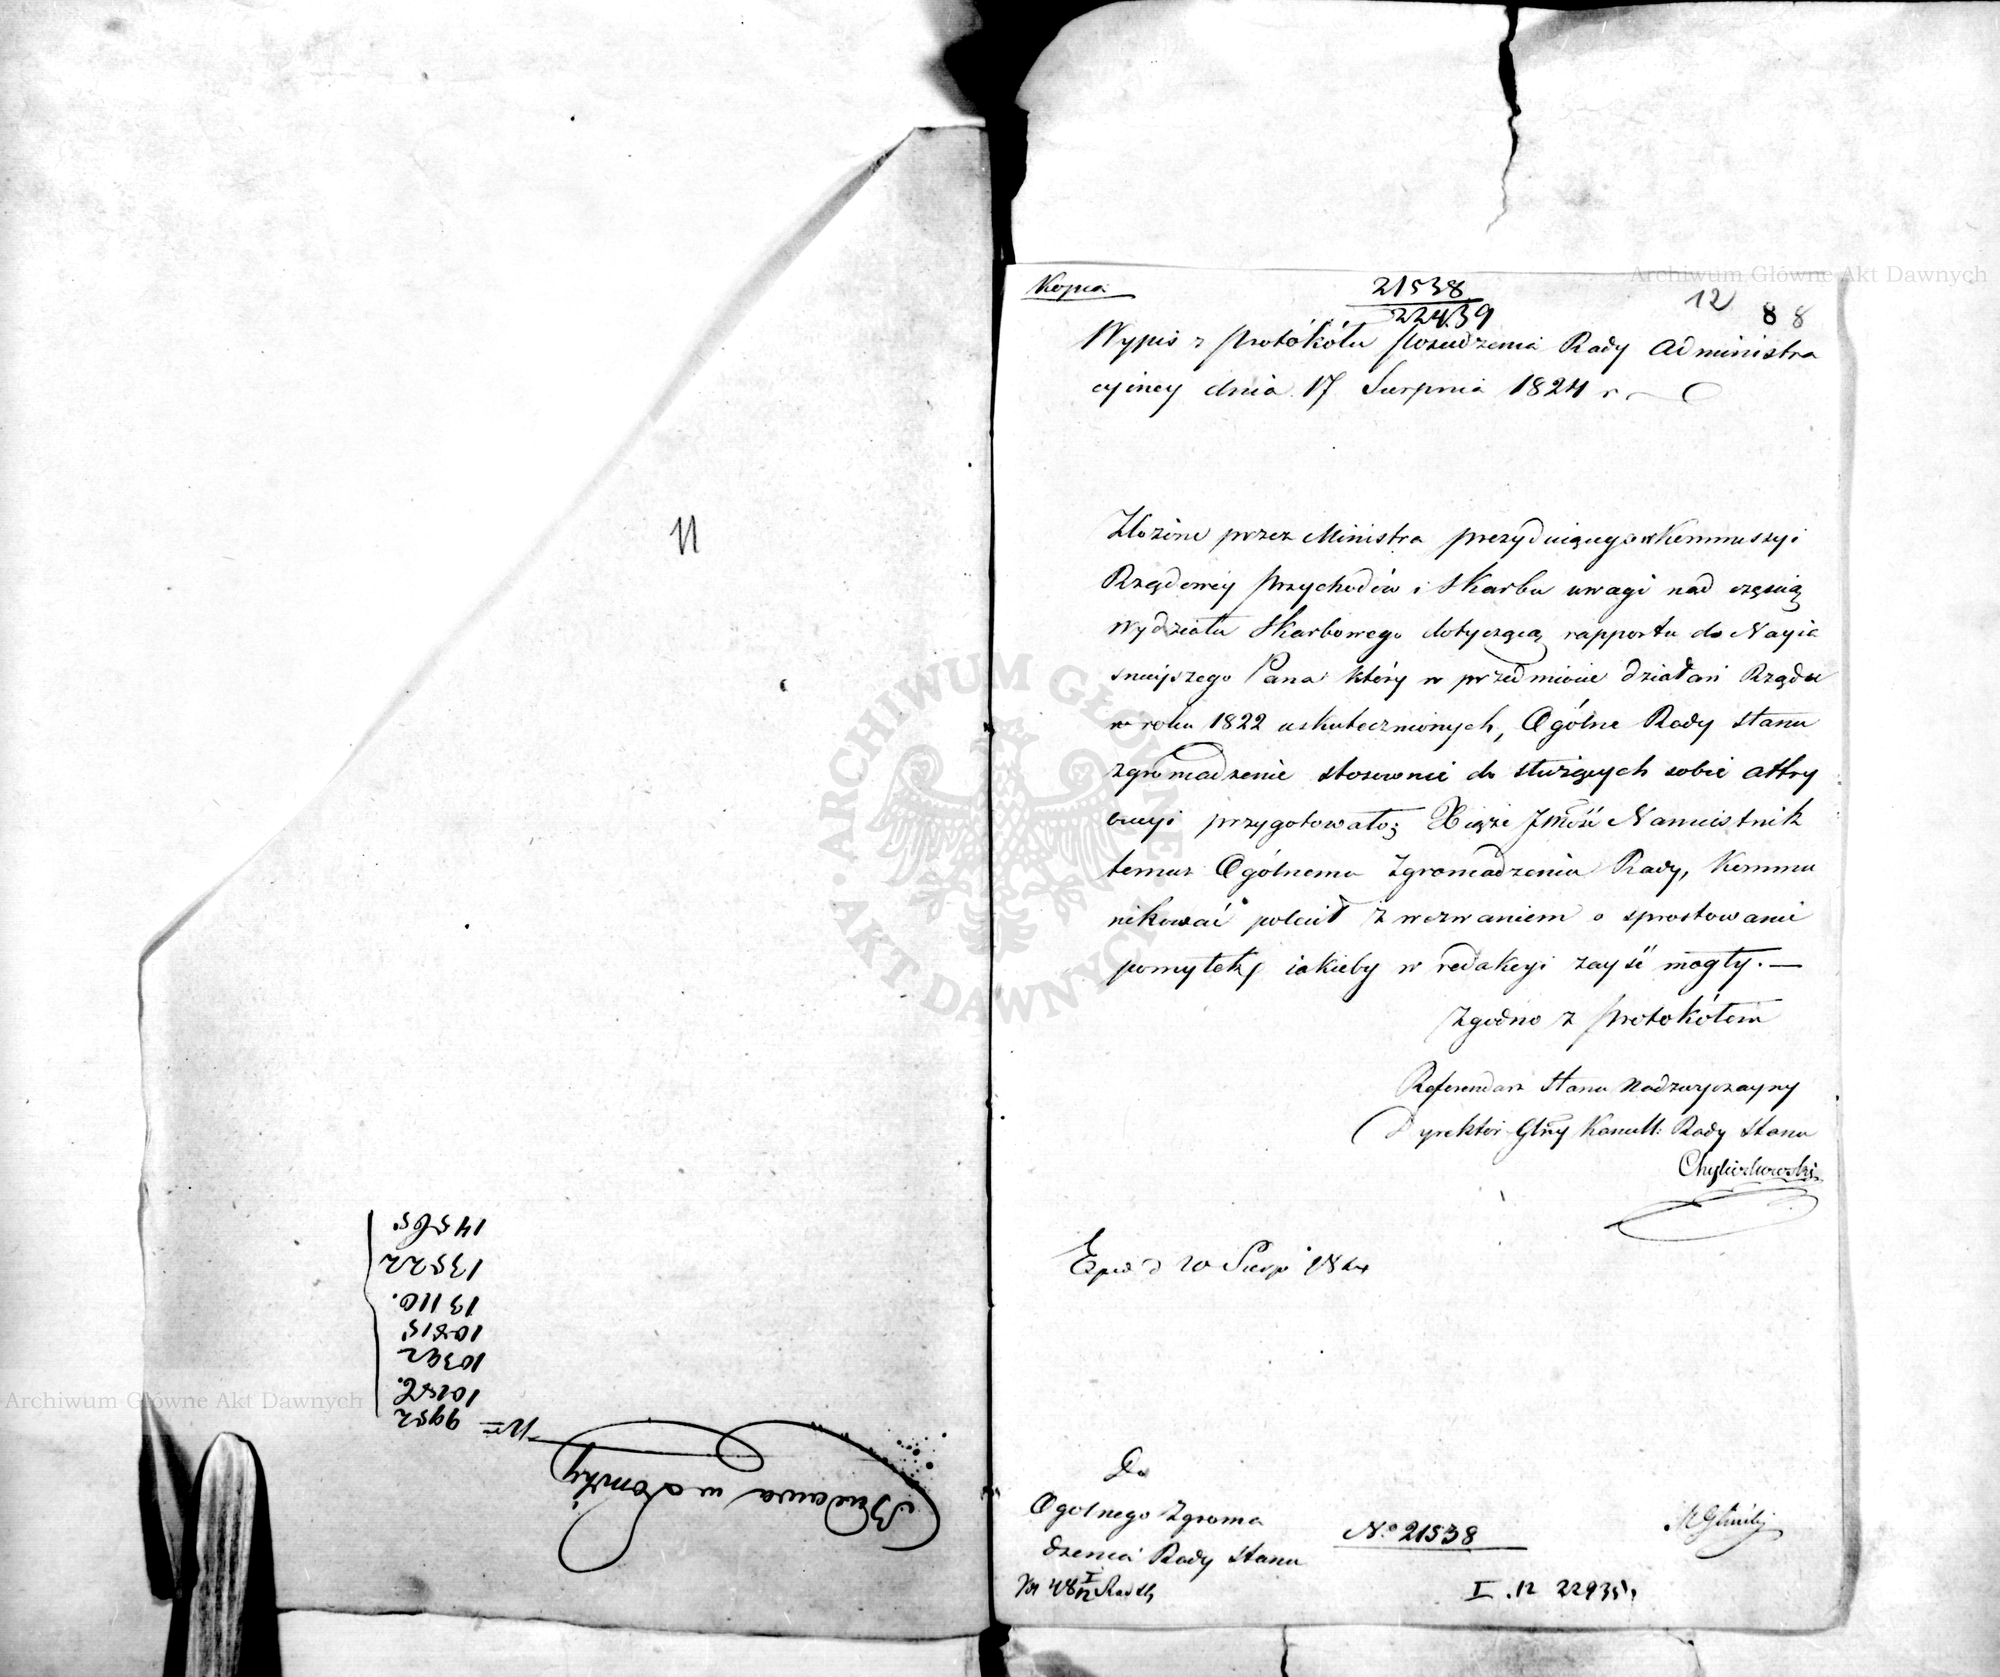 11
14565.
13522
13110.
10815
10392
10156.
9952
Budowa w Łomży
Kopia
21538
22439
12
8 8
Wypis z Protokółu Posiedzenia Rady Administra
cyiney dnia 17 Sierpnia 1824 r.
Złożone przez Ministra prezyduiącego w Kommissyi
Rządowey Przychodów i Skarbu uwagi nad częścią
Wydziału Skarbowego dotyczącą rapportu do Nayia
śnieyszego Pana który w przedmiocie działań Rządu
w roku 1822 uskutecznionych, Ogólne Rady Stanu
zgromadzenie stosownie do służących sobie attry
bucyi przygotowało; Xiąże Jmość Namiestnik
temuż Ogólnemu Zgromadzeniu Rady, Kommu
nikować polecił z wezwaniem o sprostowanie
pomyłek, iakieby w redakcyi zayść mogły. —
Zgodno z Protokółem
Referendarz Stanu Nadzwyczayny
Dyrektor Głny Kancell: Rady Stanu
Chyliczkowski
Exped d 20 Sierp 1824
Do
Ogolnego Zgroma
dzenia Rady Stanu
No 21538
I . 12 22935
Archiwum Główne Akt Dawnych
Archiwum Główne Akt Dawnych
ARCHIWUM GŁÓWNE AKT DAWNYCH